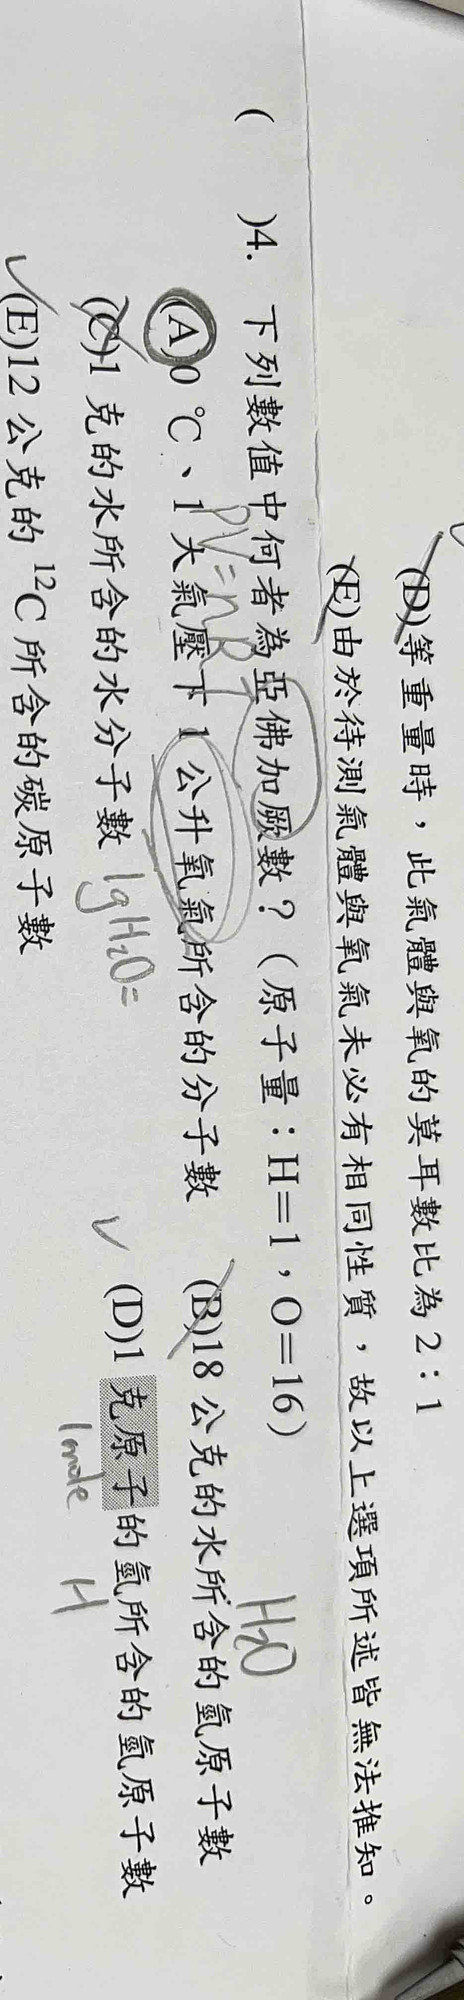 (D)等重量時，此氣體與氧的莫耳數比為 2：1
(E)由於待測氣體與氧氣未必有相同性質，故以上選項所述皆無法推知。
(　　)4. 下列數值中何者為亞佛加厥數？（原子量：H＝1，O＝16）
PV=nR
H₂O
(A)0 ℃、1 大氣壓下 1 公升氧氣所含的分子數 (B)18 公克的水所含的氫原子數
(C)1 克的水所含的水分子數 1gH₂O= ✓ (D)1 克原子的氫所含的氫原子數
1mole H
✓(E)12 公克的 ¹²C 所含的碳原子數